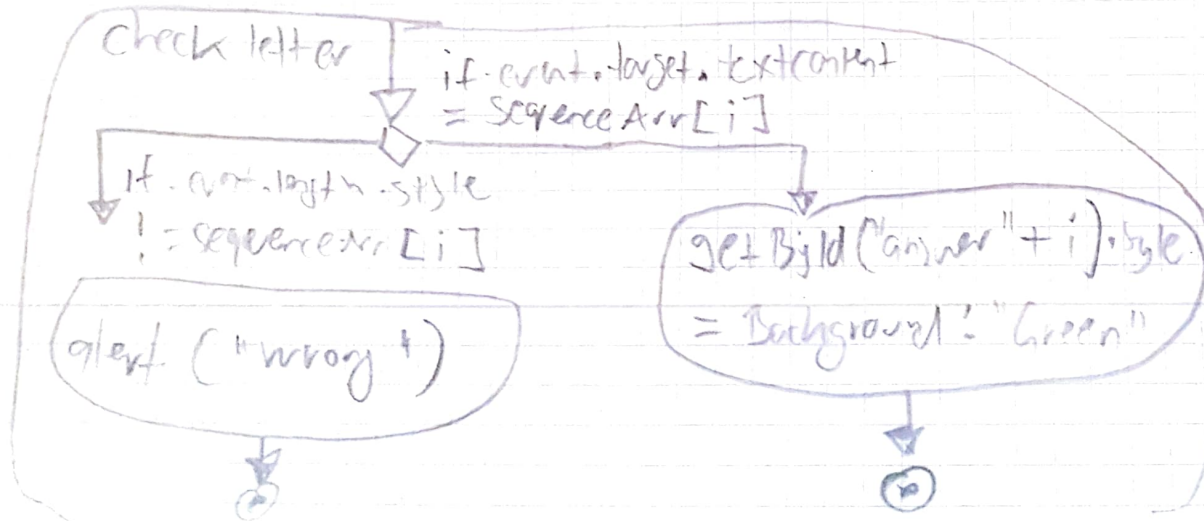 Check letter
if event.target.textcontent
= sequenceArr[i]
if
!= sequenceArr[i]
alert ("wrong")
getById("answer"+i).style
= Background: "Green"